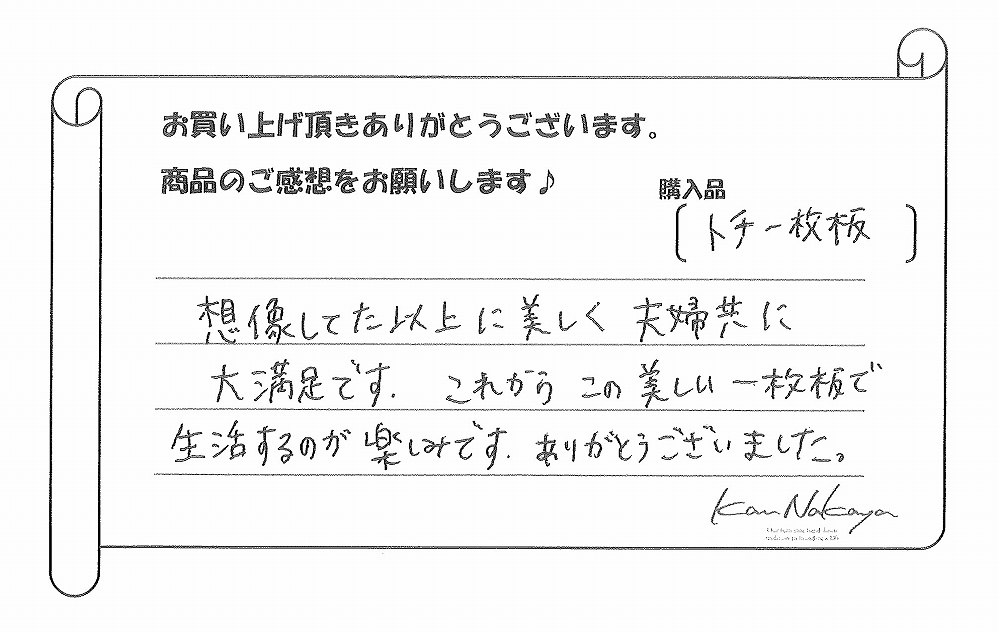 お買い上げ頂きありがとうございます。
商品のご感想をお願いします♪
購入品
〔トチ一枚板〕
想像してた以上に美しく 夫婦共に
大満足です. これから この 美しい 一枚板で
生活するのが 楽しみです. ありがとうございました。
Kan Nakaya